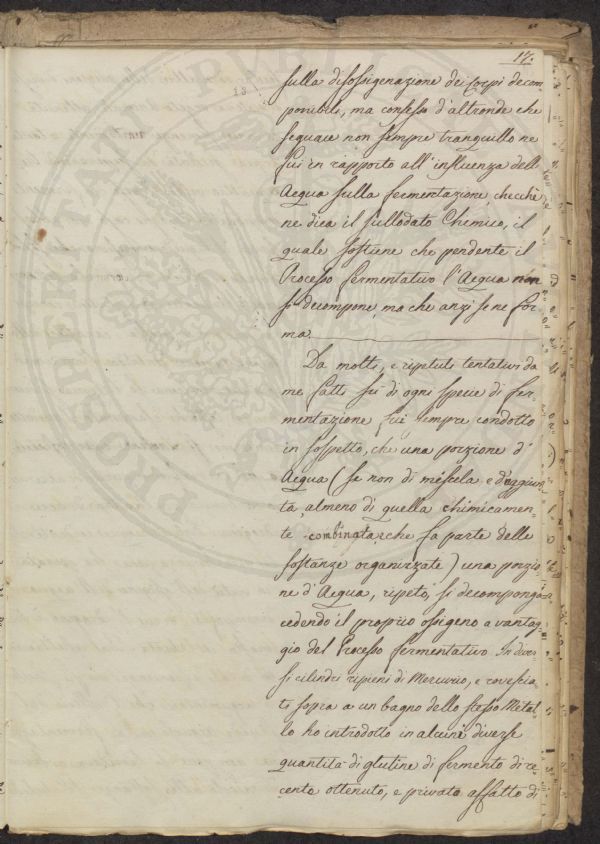 17.
sulla disossigenazione dei Corpi decom
ponibili, ma confesso d'altronde che
seguace non sempre tranquillo ne
fui in rapporto all'influenza dell'
Acqua sulla fermentazione, checchè
ne dica il sullodato Chimico, il
quale sostiene che pendente il
Processo fermentativo l'Acqua non
si decompone, ma che anzi se ne for
ma.
Da molti, e ripetuti tentativi da
me fatti su di ogni specie di fer-
mentazione fui sempre condotto
in sospetto, che una porzione d'
Acqua (se non di mescela e d'aggiun
ta, almeno di quella chimicamen-
te combinata, che fa parte delle
sostanze organizzate) una porzio
ne d'Acqua, ripeto, si decomponga
cedendo il proprio ossigeno a vantag-
gio del Processo fermentativo. In diver-
si cilindri ripieni di Mercurio, e rovescia-
ti sopra a un bagno dello stesso Metal-
lo ho introdotto in alcuni diverse
quantità di glutine di fermento di re-
cente ottenuto, e privato affatto di
PROSPERITATI PUBLICAE